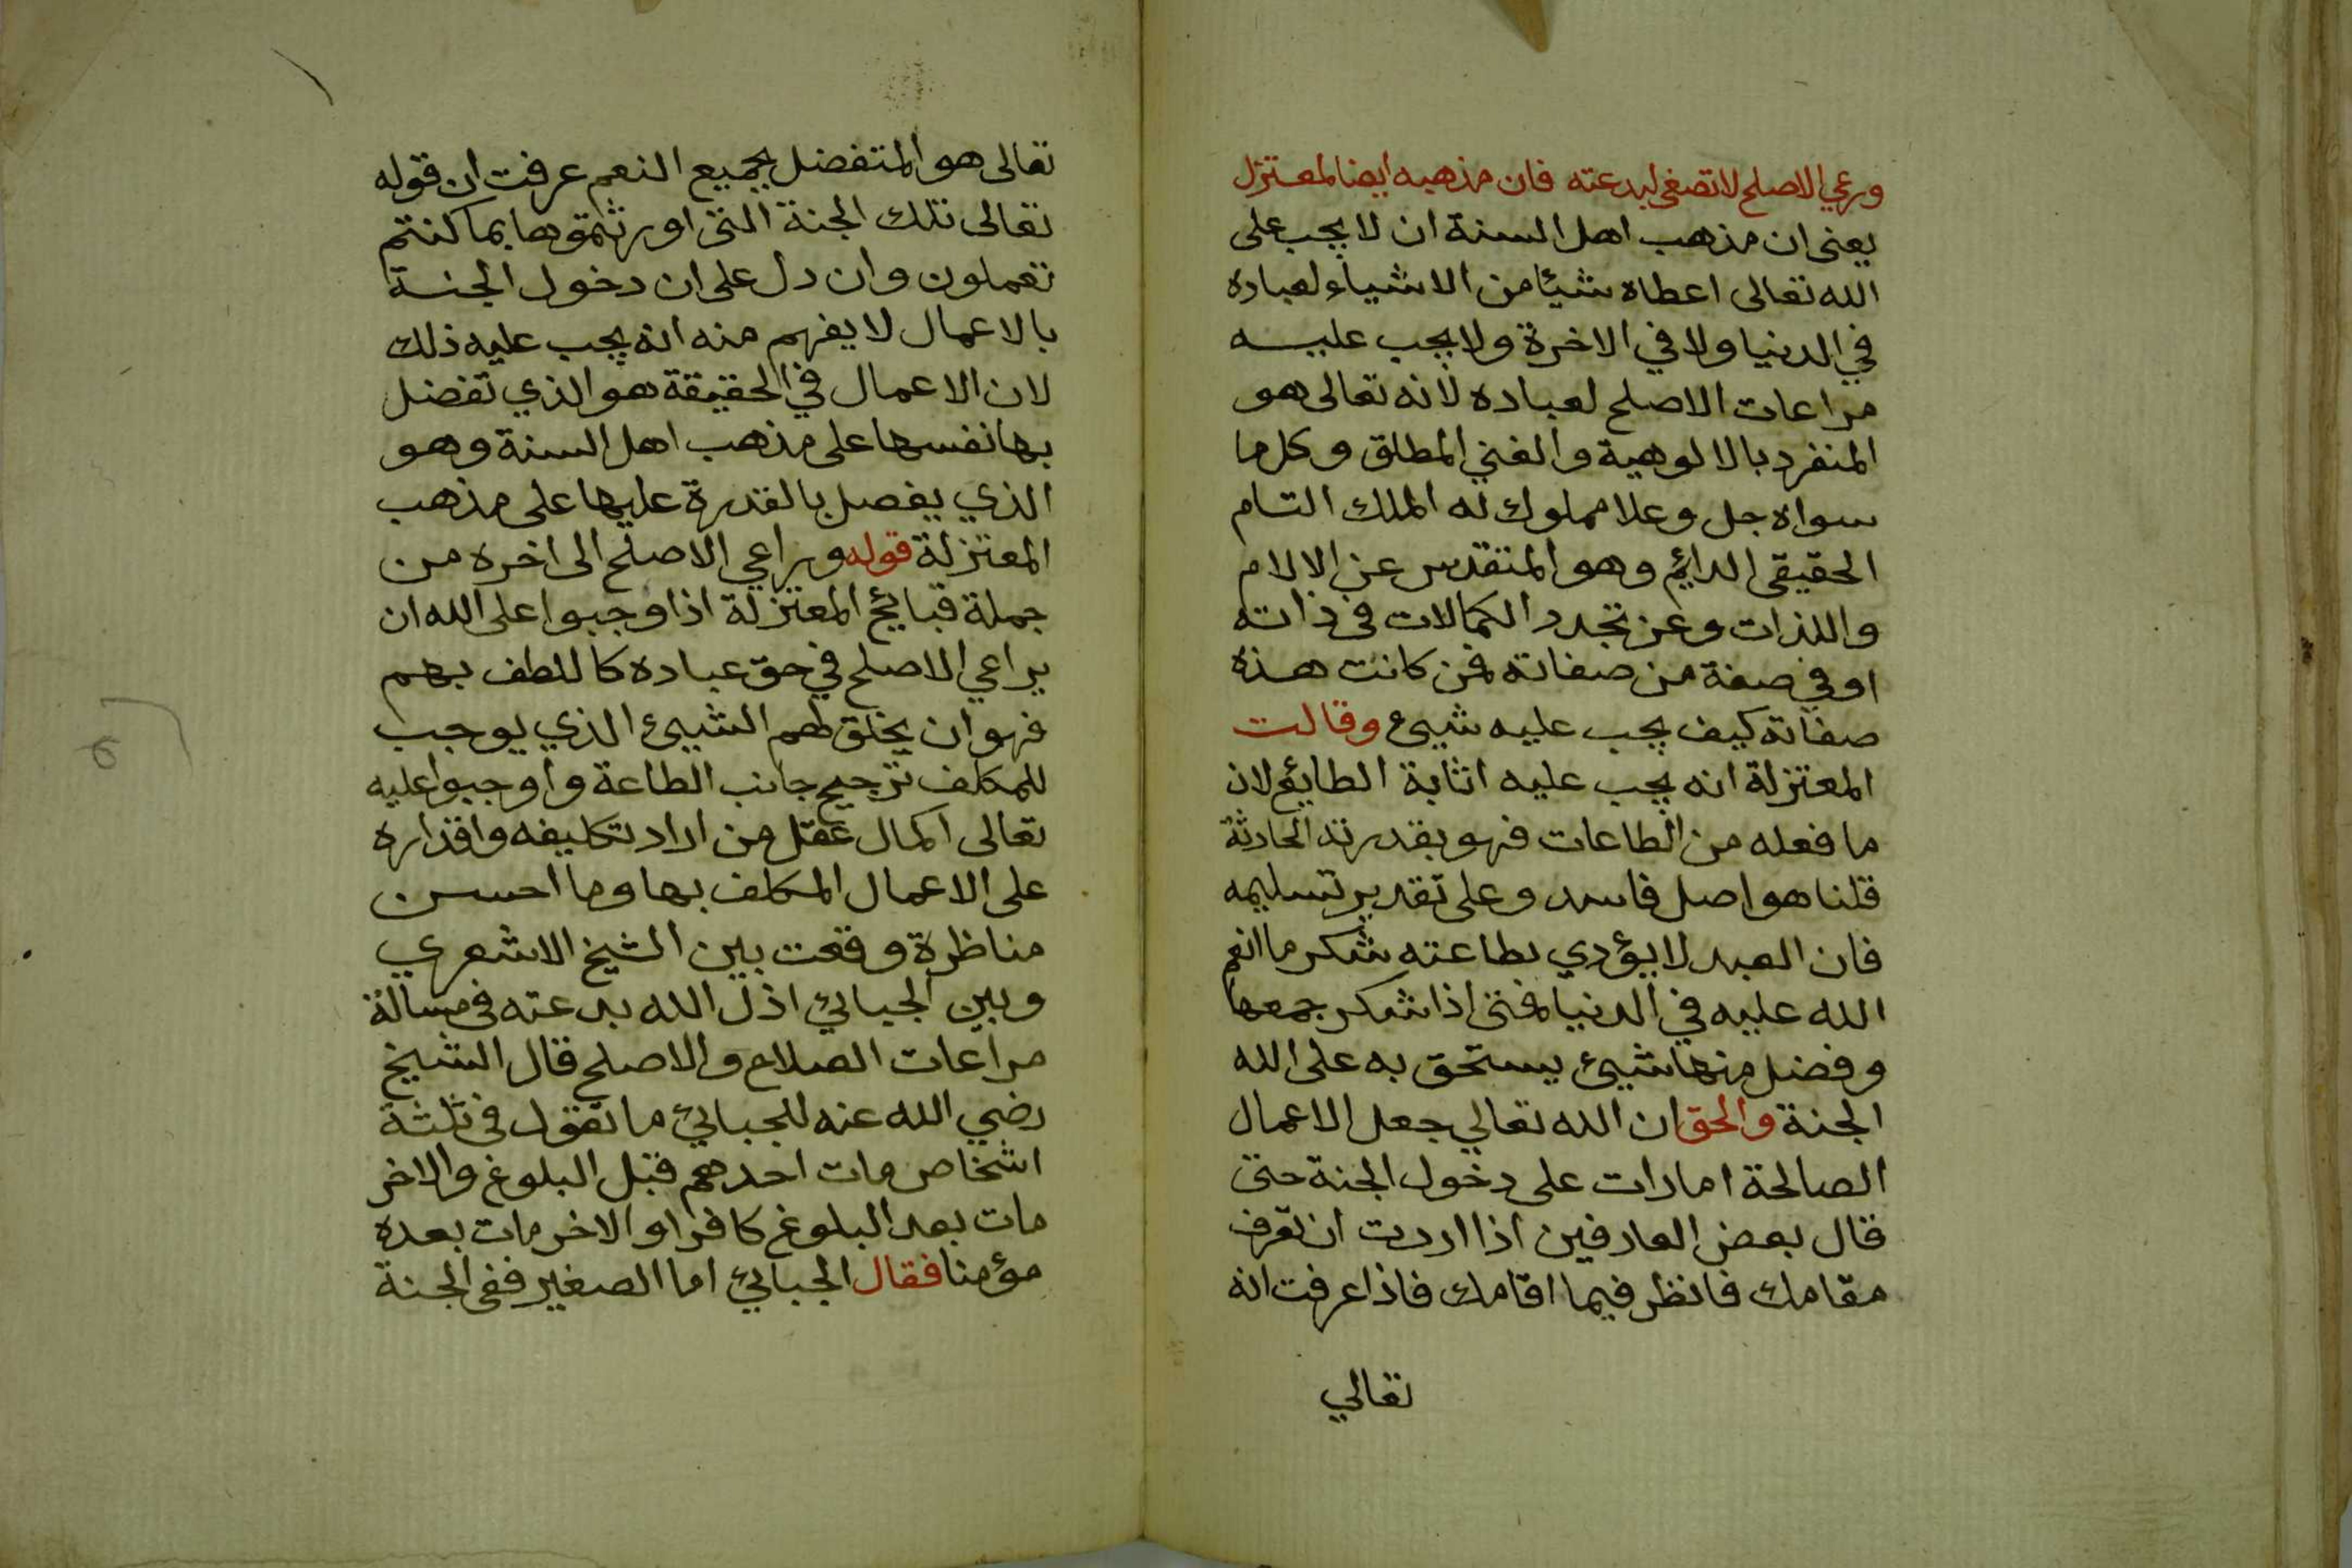 ورعي الاصلح لا تصغى لبدعته فان مذهبه ايضا لمعتزل
يعنى ان مذهب اهل السنة ان لا يجب على
الله تعالى اعطاه شيئا من الاشياء لعباده
في الدنيا ولا في الاخرة ولا يجب عليه
مراعات الاصلح لعباده لانه تعالى هو
المنفرد بالالوهية والغني المطلق وكل ما
سواه جل وعلا مملوك له الملك التام
الحقيقى الدايم وهو المتقدس عن الالام
واللذات وعن تجدد الكمالات فى ذاته
او في صفة من صفاته فمن كانت هذه
صفاته كيف يجب عليه شيئ وقالت
المعتزلة انه يجب عليه اثابة الطايع لان
ما فعله من الطاعات فهو بقدرته الحادثة
قلنا هو اصل فاسد وعلى تقدير تسليمه
فان العبد لا يؤدي بطاعته شكر ما انعم
الله عليه في الدنيا فمتى اذا شكر جمعها
وفضل منها شيئ يستحق به على الله
الجنة والحق ان الله تعالي جعل الاعمال
الصالحة امارات على دخول الجنة حتى
قال بعض العارفين اذا اردت ان تعرف
مقامك فانظر فيما اقامك فاذا عرفت انه
تعالي
تعالى هو المتفضل بجميع النعم عرفت ان قوله
تعالى تلك الجنة التى اورثتموها بما كنتم
تعملون وان دل على ان دخول الجنة
بالاعمال لا يفهم منه انه يجب عليه ذلك
لان الاعمال في الحقيقة هو الذي تفضل
بها نفسها على مذهب اهل السنة وهو
الذي يفصل بالقدرة عليها على مذهب
المعتزلة قوله ويراعي الاصلح الى اخره من
جملة قبايح المعتزلة اذا وجبوا على الله ان
يراعي الاصلح في حق عباده كاللطف بهم
فهو ان يخلق لهم الشيئ الذي يوجب
للمكلف ترجيح جانب الطاعة واوجبوا عليه
تعالى اكمال عقل من اراد تكليفه واقداره
على الاعمال المكلف بها وما احسن
مناظرة وقعت بين الشيخ الاشعري
وبين الجبائي اذل الله بدعته فى مسالة
مراعات الصلاح والاصلح قال الشيخ
رضي الله عنه للجبائي ما تقول فى ثلثة
اشخاص مات احدهم قبل البلوغ والاخر
مات بعد البلوغ كافرا والاخر مات بعده
مؤمنا فقال الجبائي اما الصغير ففى الجنة